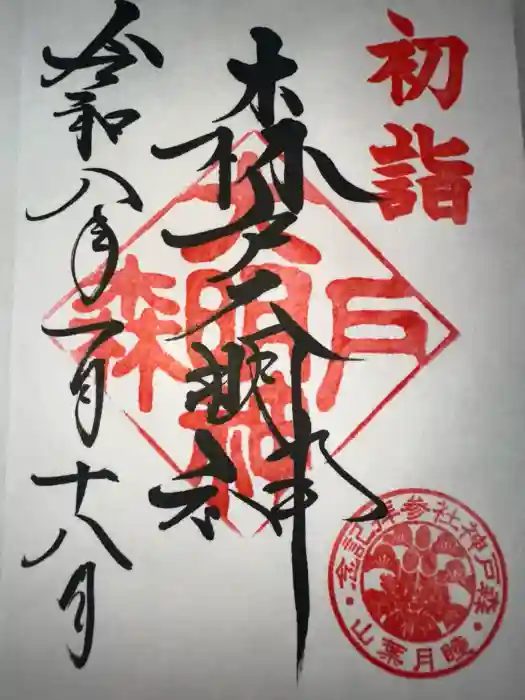 初詣
森戸大明神
令和八年一月十八日
森戸大明神
森戸神社参拝記念
葉山